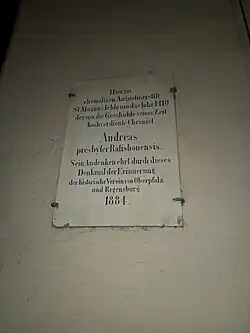 Hier im
ehemaligen Augustinerstift
St. Mang lebte um das Jahr 1410
der um die Geschichte seiner Zeit
hochverdiente Chronist
Andreas
presbyter Ratisbonensis.
Sein Andenken ehrt durch dieses
Denkmal der Erinnerung
der historische Verein von Oberpfalz
und Regensburg
1884.